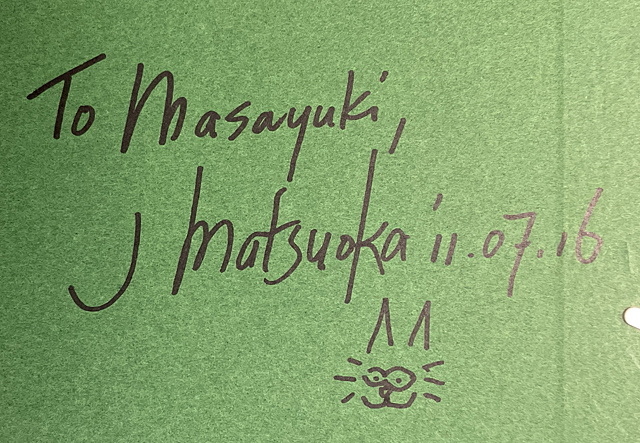 To Masayuki,
J Matsuoka '11.07.16